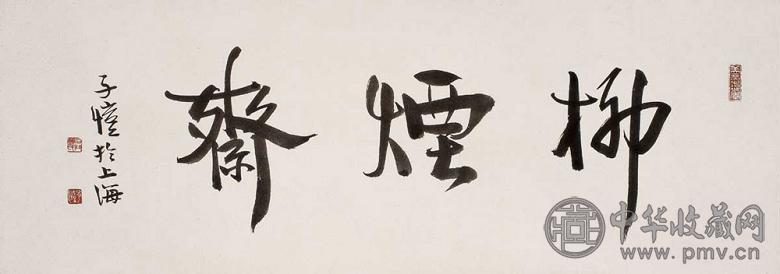 柳煙齋
子愷於上海
中华收藏网
www.pmv.cn